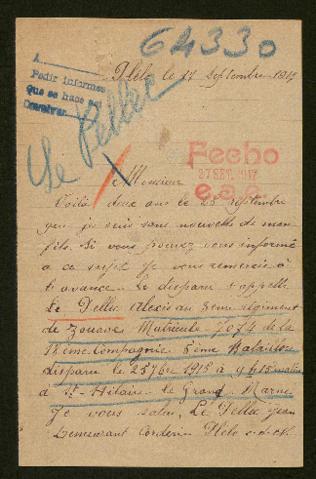 64330
A
Pedir informes
Que se hace por
Plélo le 17 Septembre 1917
Le Pellec
Fecho
27 SET. 1917
Monsieur
Voilà deux ans le 25 Septembre
que je suis sans nouvelle de mon
fils. Si vous pouvez vous informé
a ce sujet je vous remercie à
ti avance. Le disparu s appelle
Le Pellec Alexis au 8eme régiment
de Zouaves Matricule 7074 de la
18eme Compagnie 5eme Bataillon
disparu le 25 7bre 1915 a 9h15 matin
à St-Hilaire le Grand Marne
Je vous salue, Le Pellec Jean
Demeurant Plélo c-d-N.